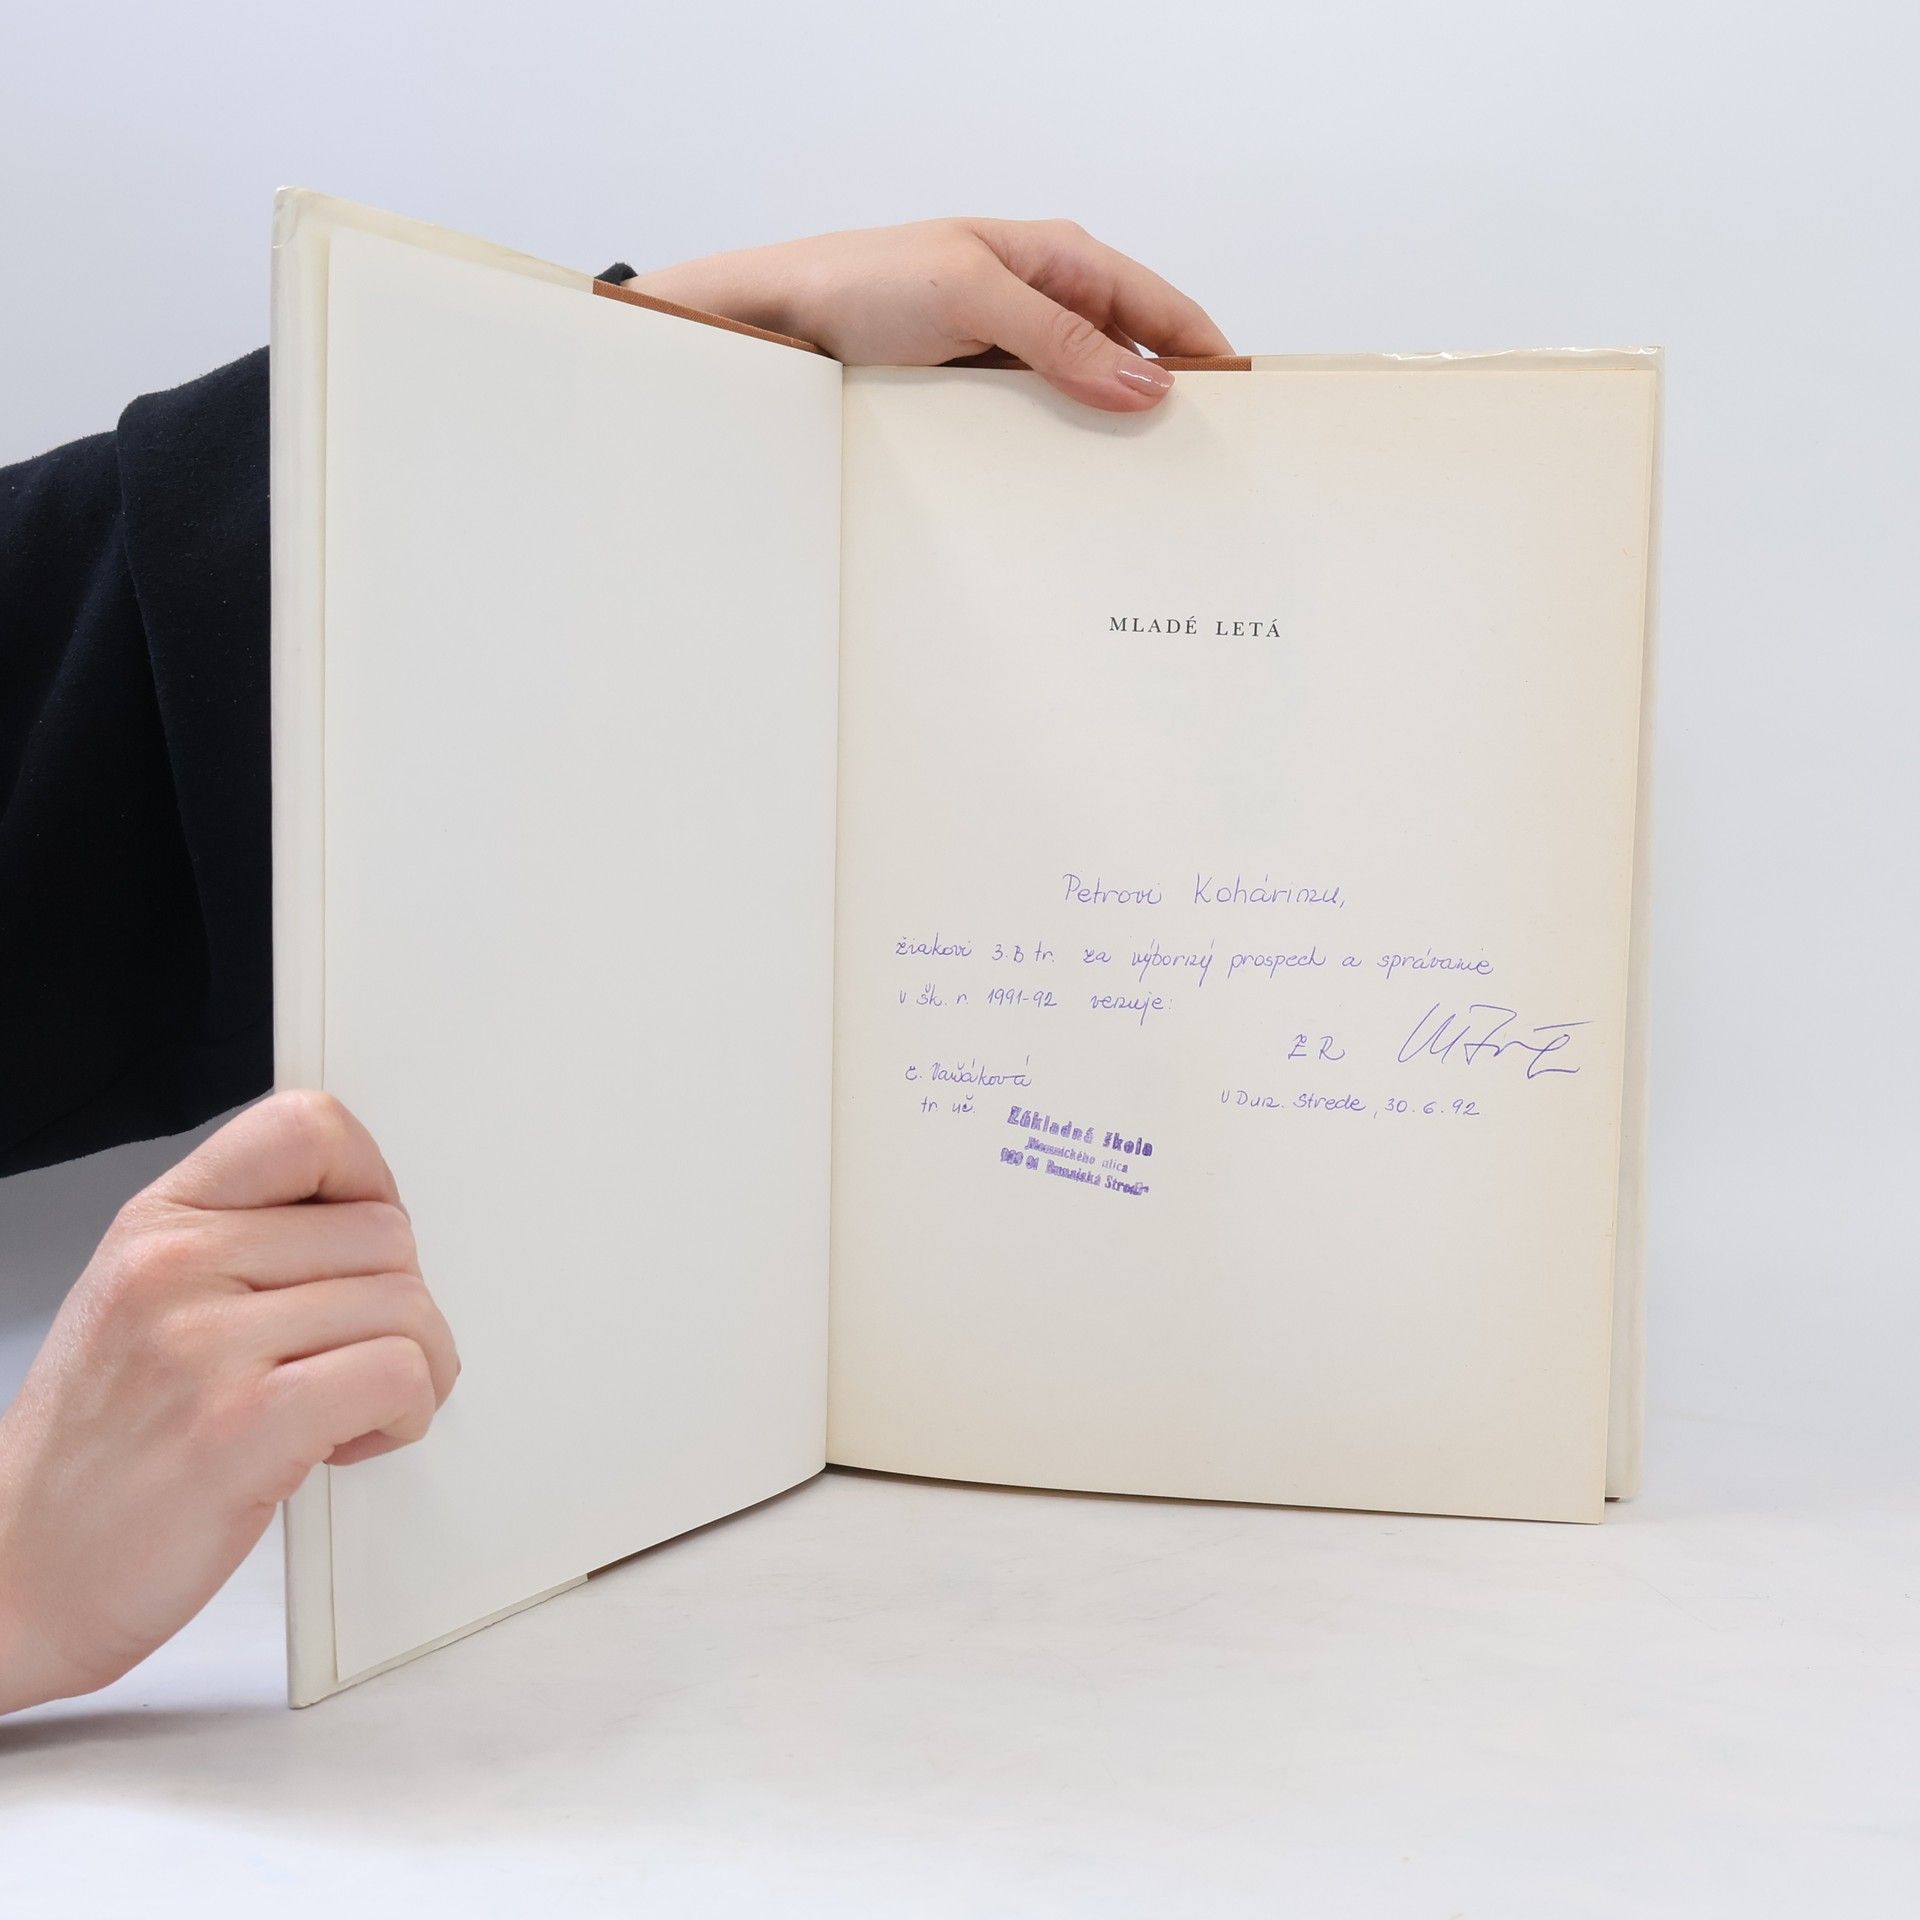 MLADÉ LETÁ
Petrovi Kohárimu,
žiakovi 3.B tr. za výborný prospech a správanie
v šk. r. 1991-92 venuje:
ZR
E. Vaňáková
tr. uč.
V Dun. Strede, 30.6.92
Základná škola
ulica
Dunajská Streda